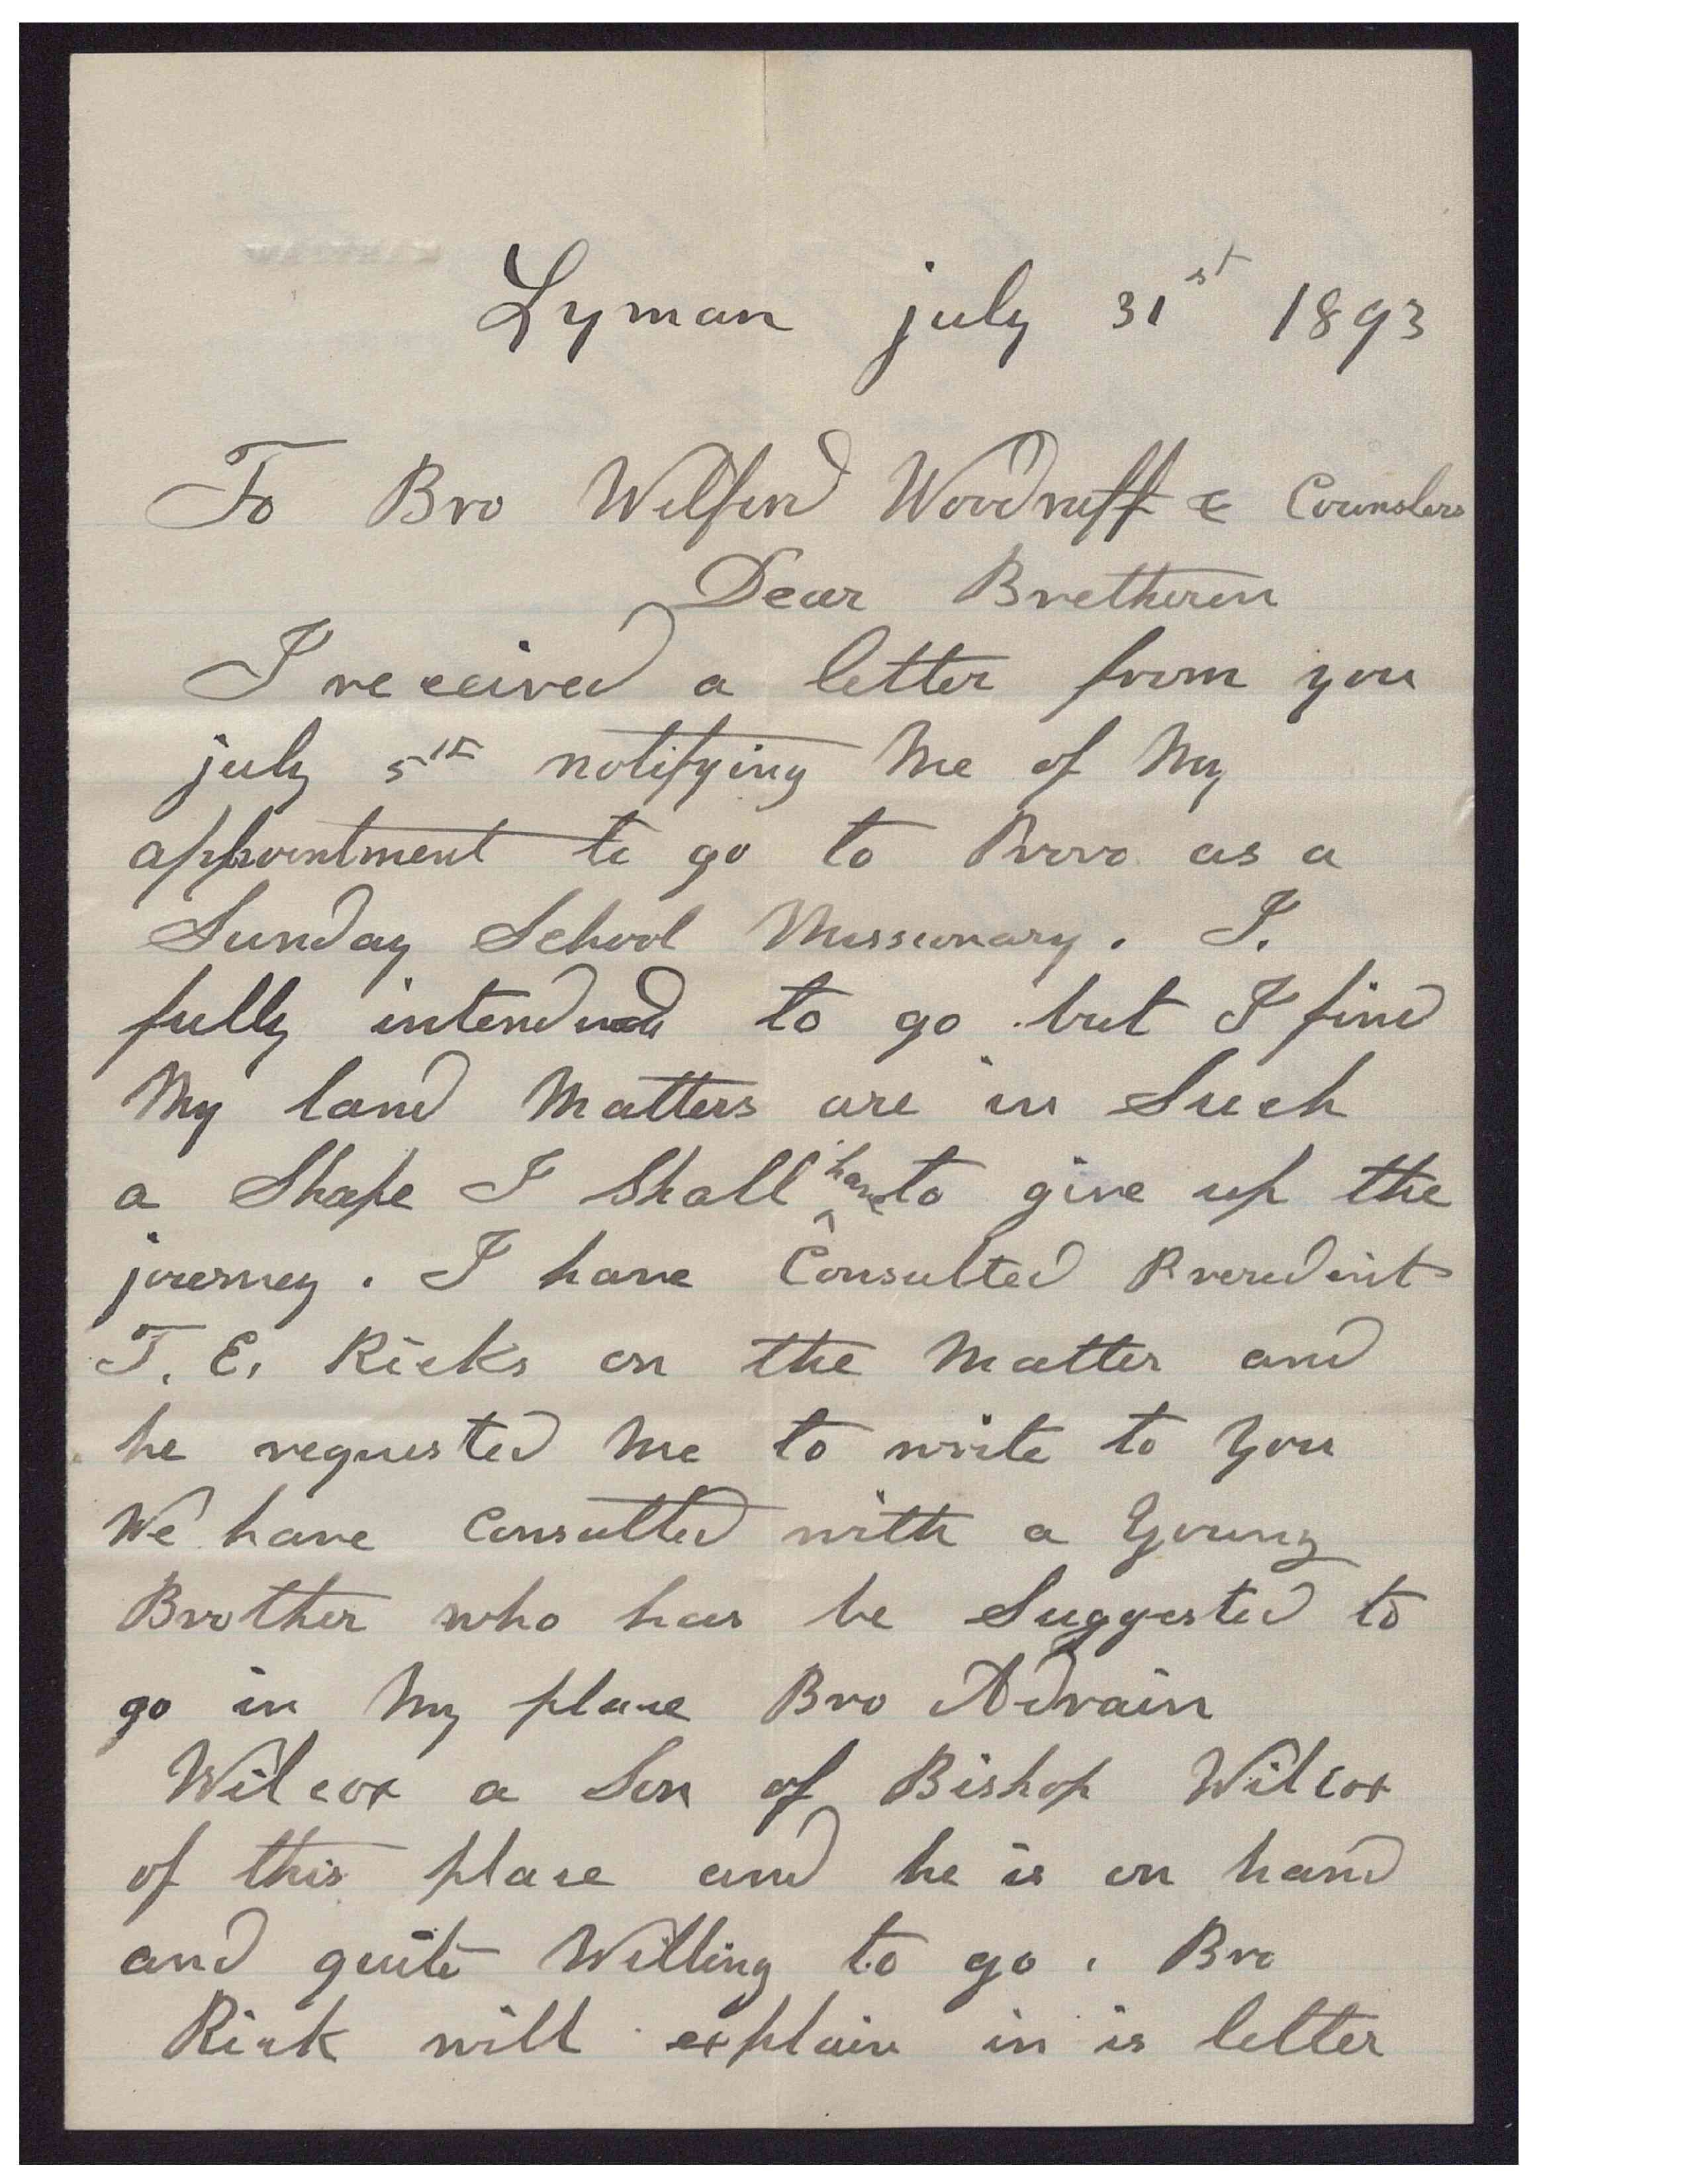 Lyman july 31st 1893
To Bro Wilford Woodruff & Counslers
Dear Bretheren
I received a letter from you
july 5th notifying Me of My
appointment to go to Provo as a
Sunday School Missionary. I.
fully intended to go but I find
My land Matters are in Such
a Shape I Shall have to give up the
journey. I have Consulted
T. E. Ricks on the Matter and
he requested Me to write to You
We have Consulted with a Young
Brother who has be Suggested to
go in My place Bro Adrain
Wilcox a Son of Bishop Wilcox
of this place and he is on hand
and quite Willing to go. Bro
Rick will explain in is letter